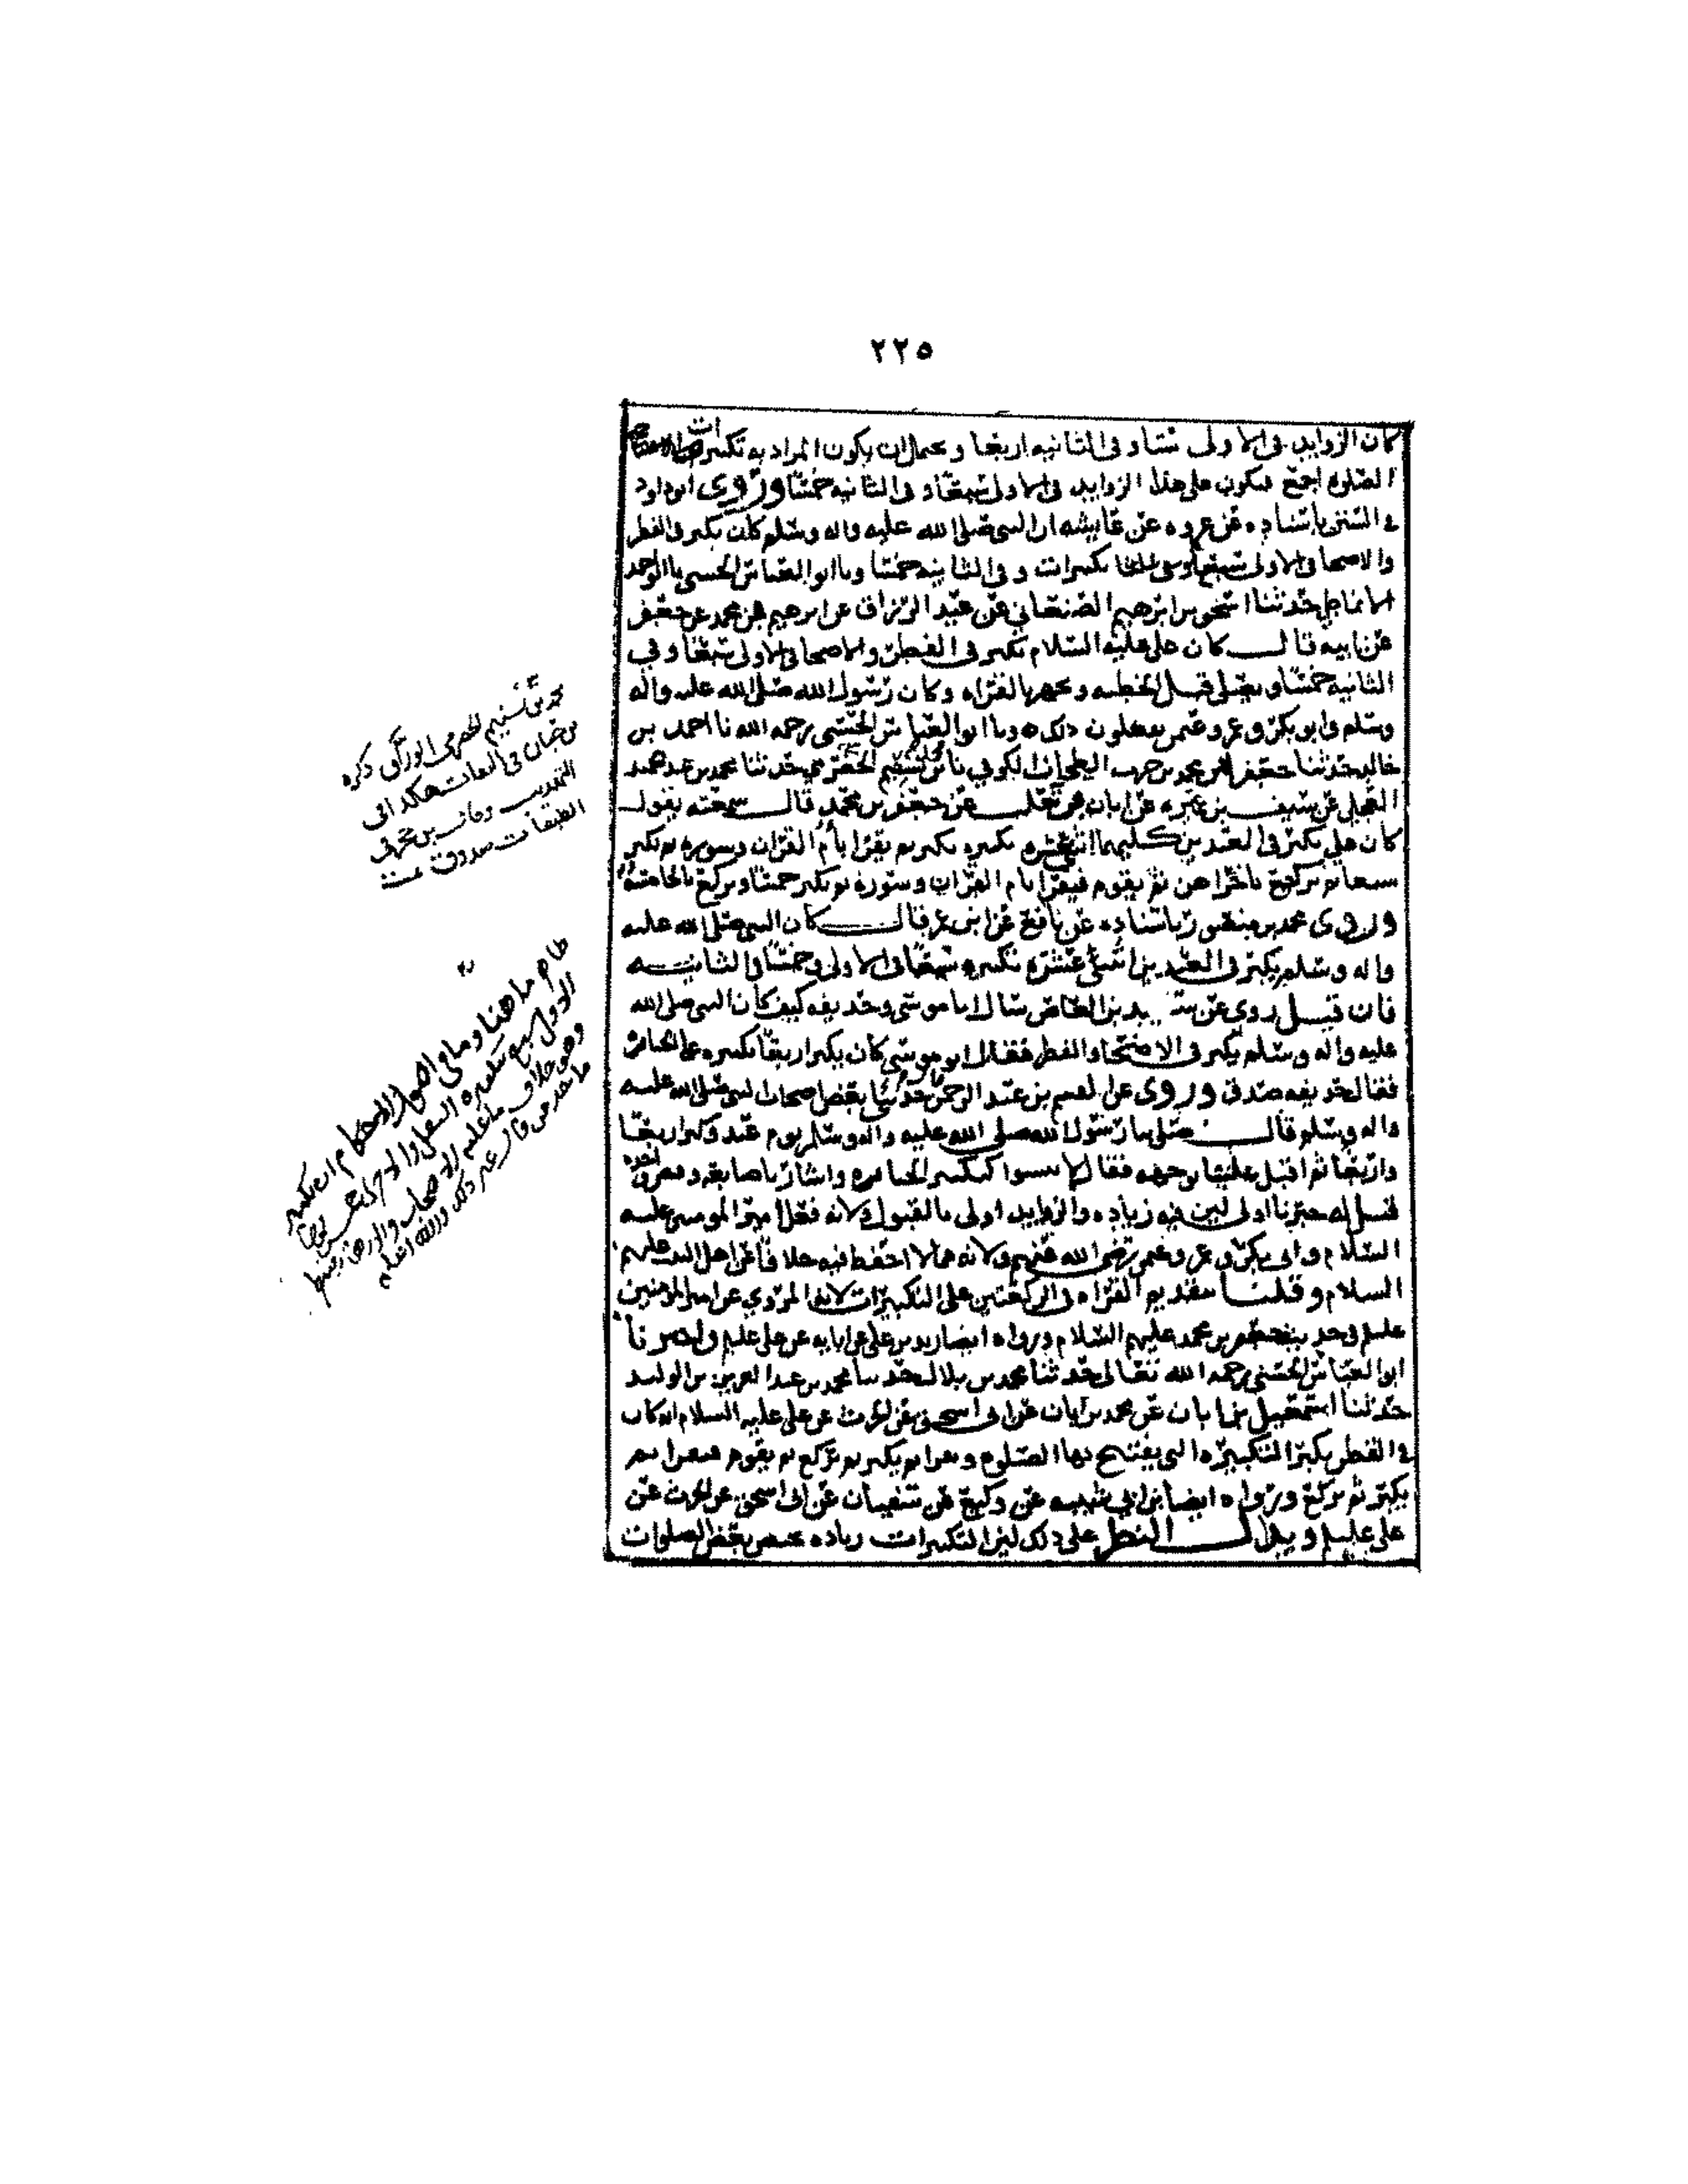 ٢٢٥
كان الزوايد في الاولى ستا وفي الثانيه اربعا ويحتمل ان يكون المراد به تكبيرات
الصلوه اجمع فيكون على هذا الزوايد في الاولى سبعا وفي الثانيه خمسا وروى ابوداود
في السنن باسناده عن عروه عن عايشه ان النبي صلى الله عليه واله وسلم كان يكبر في الفطر
والاضحى في الاولى سبع تكبيرات وفي الثانيه خمسا ونا ابو العباس الحسني
الانماطي حدثنا اسحق بن ابرهيم الصنعاني عن عبد الرزاق عن ابرهيم بن محمد عن جعفر
عن ابيه قال كان علي عليه السلام يكبر في الفطر والاضحى في الاولى سبعا وفي
الثانيه خمسا ويصلي قبل الخطبه ويجهر بالقراه وكان رسول الله صلى الله عليه واله
وسلم وابو بكر وعمر وعثمن يفعلون ذلك ونا ابو العباس الحسني رحمه الله نا احمد بن
خالد حدثنا جعفر بن محمد بن حرب الطحان الكوفي نا محمد بن تسنيم الحضرمي حدثنا محمد بن عبد حميد
عن سيف بن عميره عن ابان بن تغلب عن جعفر بن محمد قال سمعته يقول
كان علي يكبر في العيدين كليهما اثني عشره تكبيره يكبر ثم يقرا بام القران وسوره ثم يكبر
سبعا ثم يركع باخراهن ثم يقوم فيقرا بام القران وسوره ثم يكبر خمسا ويركع بالخامسه
وروى محمد بن منصور باسناده عن نافع عن ابن عمر قال كان النبي صلى الله عليه
واله وسلم يكبر في العيدين اثنتي عشره تكبيره سبعا في الاولى وخمسا في الثانيه
فان قيل روي عن سعيد بن العاص سال ابا موسى وحذيفه كيف كان النبي صلى الله
عليه واله وسلم يكبر في الاضحى والفطر فقال ابو موسى كان يكبر اربعا تكبيره على الجنائز
فقال حذيفه صدق وروى عن القسم بن عبد الرحمن حدثني بعض اصحاب النبي صلى الله عليه
واله وسلم قال صلى بنا رسول الله صلى الله عليه واله وسلم يوم عيد وكبر اربعا
واربعا ثم اقبل علينا بوجهه فقال لا تنسوا كتكبير الجنايز واشار باصابعه
قيل له خبرنا اولى لان فيه زياده والزوايد اولى بالقبول ولانه فعل امير المومنين عليه
السلام وابي بكر وعمر وعثمن رضي الله عنهم ولانه مما لا احفظ فيه خلافا عن اهل البيت عليهم
السلام وقلنا بتقديم القراه في الركعتين على التكبيرات لانه المروي عن امير المؤمنين
عليلم في حديث جعفر بن محمد عليهم السلام ورواه ايضا زيد بن علي عن ابايه عن علي عليلم واخبرنا
ابو العباس الحسني رحمه الله تعالى حدثنا محمد بن بلال حدثنا محمد بن عبد العزيز بن الوليد
حدثنا اسمعيل بن ابان عن محمد بن ابان عن ابي اسحق عن الحرث عن علي عليه السلام انه كان
في الفطر يكبر التكبيره التي يفتتح بها الصلوه ويقرا ثم يكبر ثم يركع ثم يقوم فيقرا ثم
يكبر ثم يركع ورواه ايضا ابن ابي شيبه عن وكيع عن سفيان عن ابي اسحق عن الحرث عن
علي عليلم ويدل النظر على ذلك لان التكبيرات زياده تختص بعض الصلوات
محمد بن تسنيم الحضرمي الوراق ذكره
بن حبان في الثقات هكذا في
التهذيب وقال بن حجر في
الطبقات صدوق
ظاهر ما هنا وما في اصول الاحكام ان تكبير